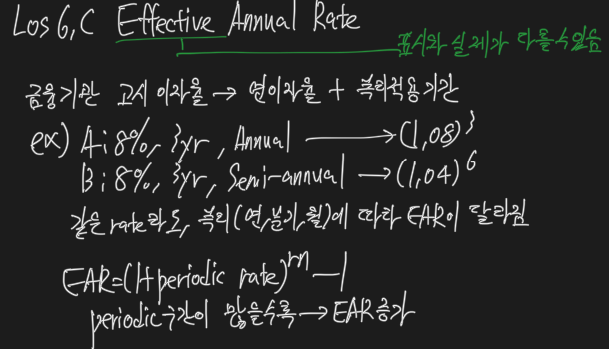 Los 6,C Effective Annual Rate
표시와 실제가 다를수있음
금융기관 고시 이자율 → 연이자율 + 복리적용기간
ex) A: 8%, 3yr, Annual → (1,08)³
B: 8%, 3yr, Semi-annual → (1,04)⁶
같은 rate라도, 복리(연,분기,월)에 따라 EAR이 달라짐
EAR=(1+periodic rate)ᵐ-1
periodic구간이 많을수록→EAR증가